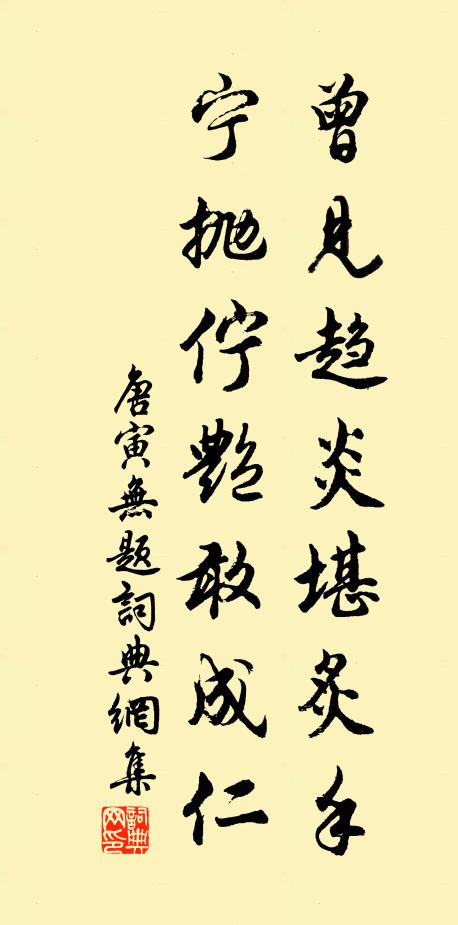 曾見趋炎堪炙手
宁抛佇艷敢成仁
唐寅無題詞典網集
詞典網印